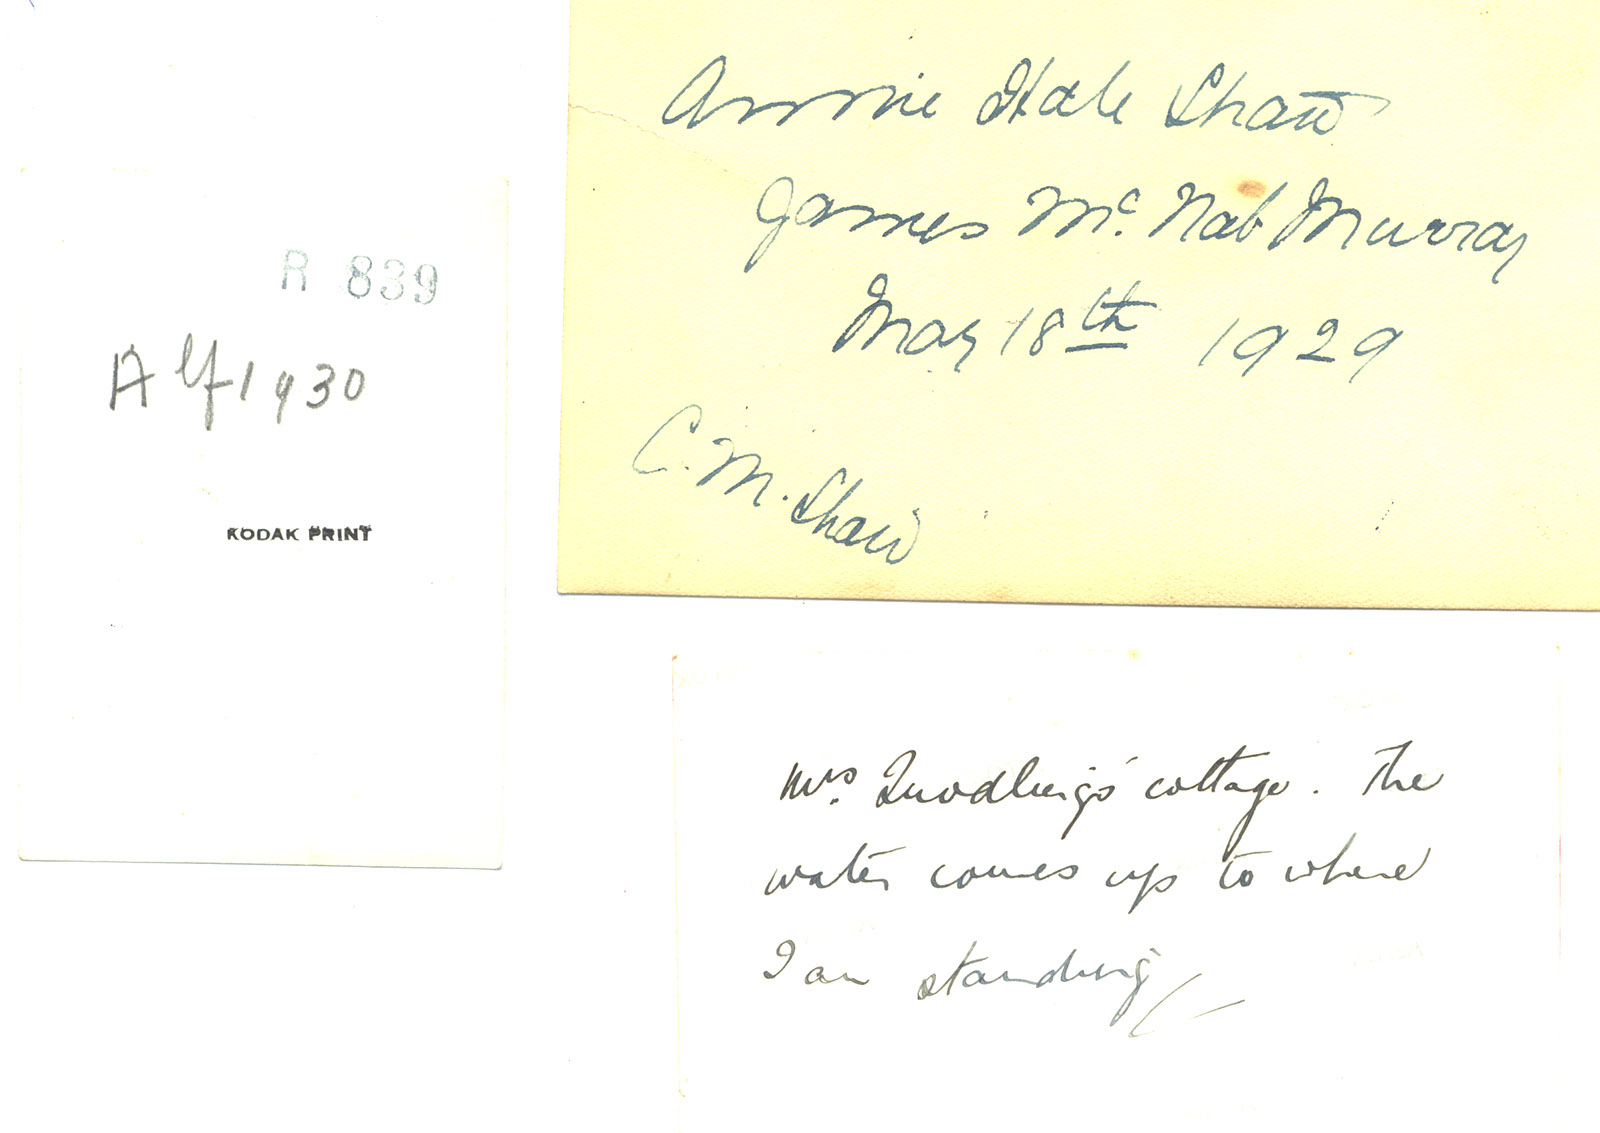 R 839
Alf 1930
KODAK PRINT
Annie Hale Shaw
James Mc. Nab Murray
May 18th 1929
C. M. Shaw
Mrs. cottage. The
water comes up to where
I am standing